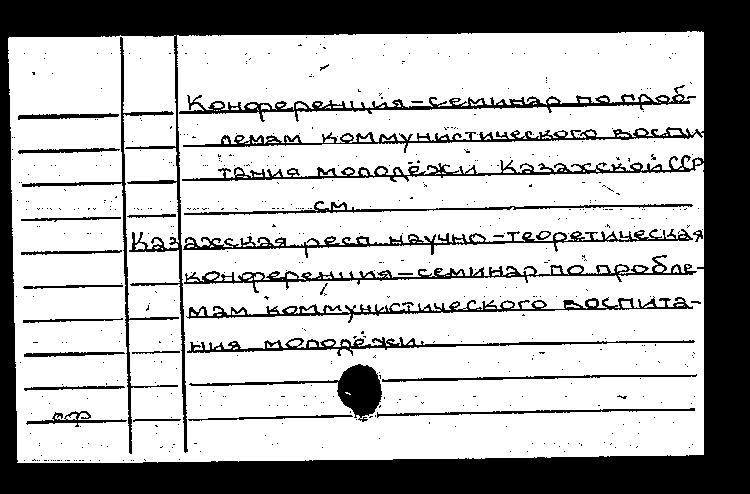 Конференция-семинар по проб-
лемам коммунистического воспи-
тания молодёжи Казахской ССР
см.
Казахская респ. научно-теоретическая
конференция-семинар по пробле-
мам коммунистического воспита-
ния молодёжи.